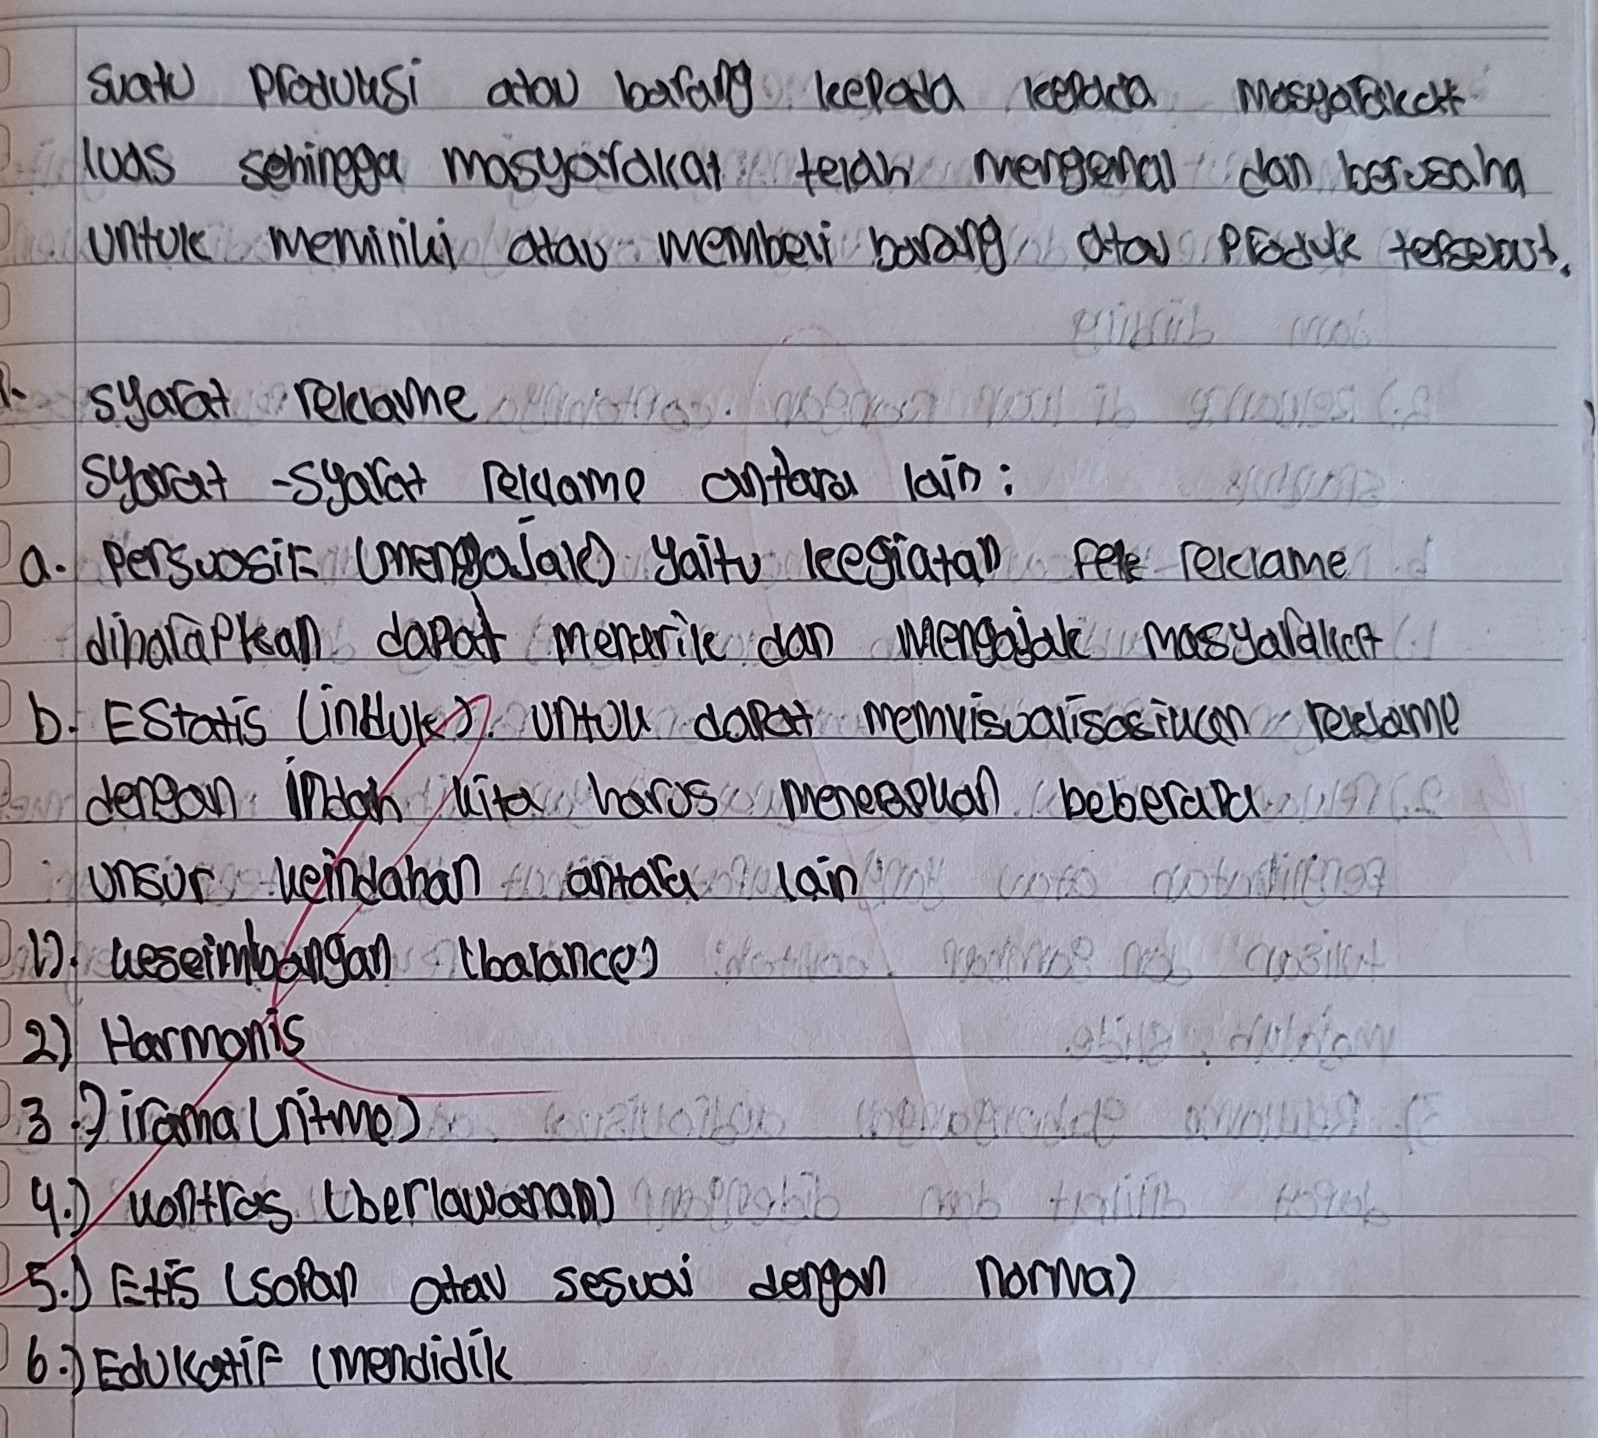 suatu produksi atau barang kepada kepada masyarakat
luas sehingga masyarakat telah mengenal dan berusaha
untuk memiliki atau membeli barang atau produk tersebut.
1. syarat reklame
syarat-syarat reklame antara lain:
a. persuasif (mengajak) yaitu kegiatan reklame
diharapkan dapat menarik dan mengajak masyarakat
b. Estatis (induk). untuk dapat memvisualisasikan reklame
dengan indah kita harus menerapkan beberapa
unsur keindahan antara lain
1). keseimbangan (balance)
2) Harmonis
3.) irama (ritme)
4.) kontras (berlawanan)
5.) Etis (sopan atau sesuai dengan norma)
6.) Edukatif (mendidik